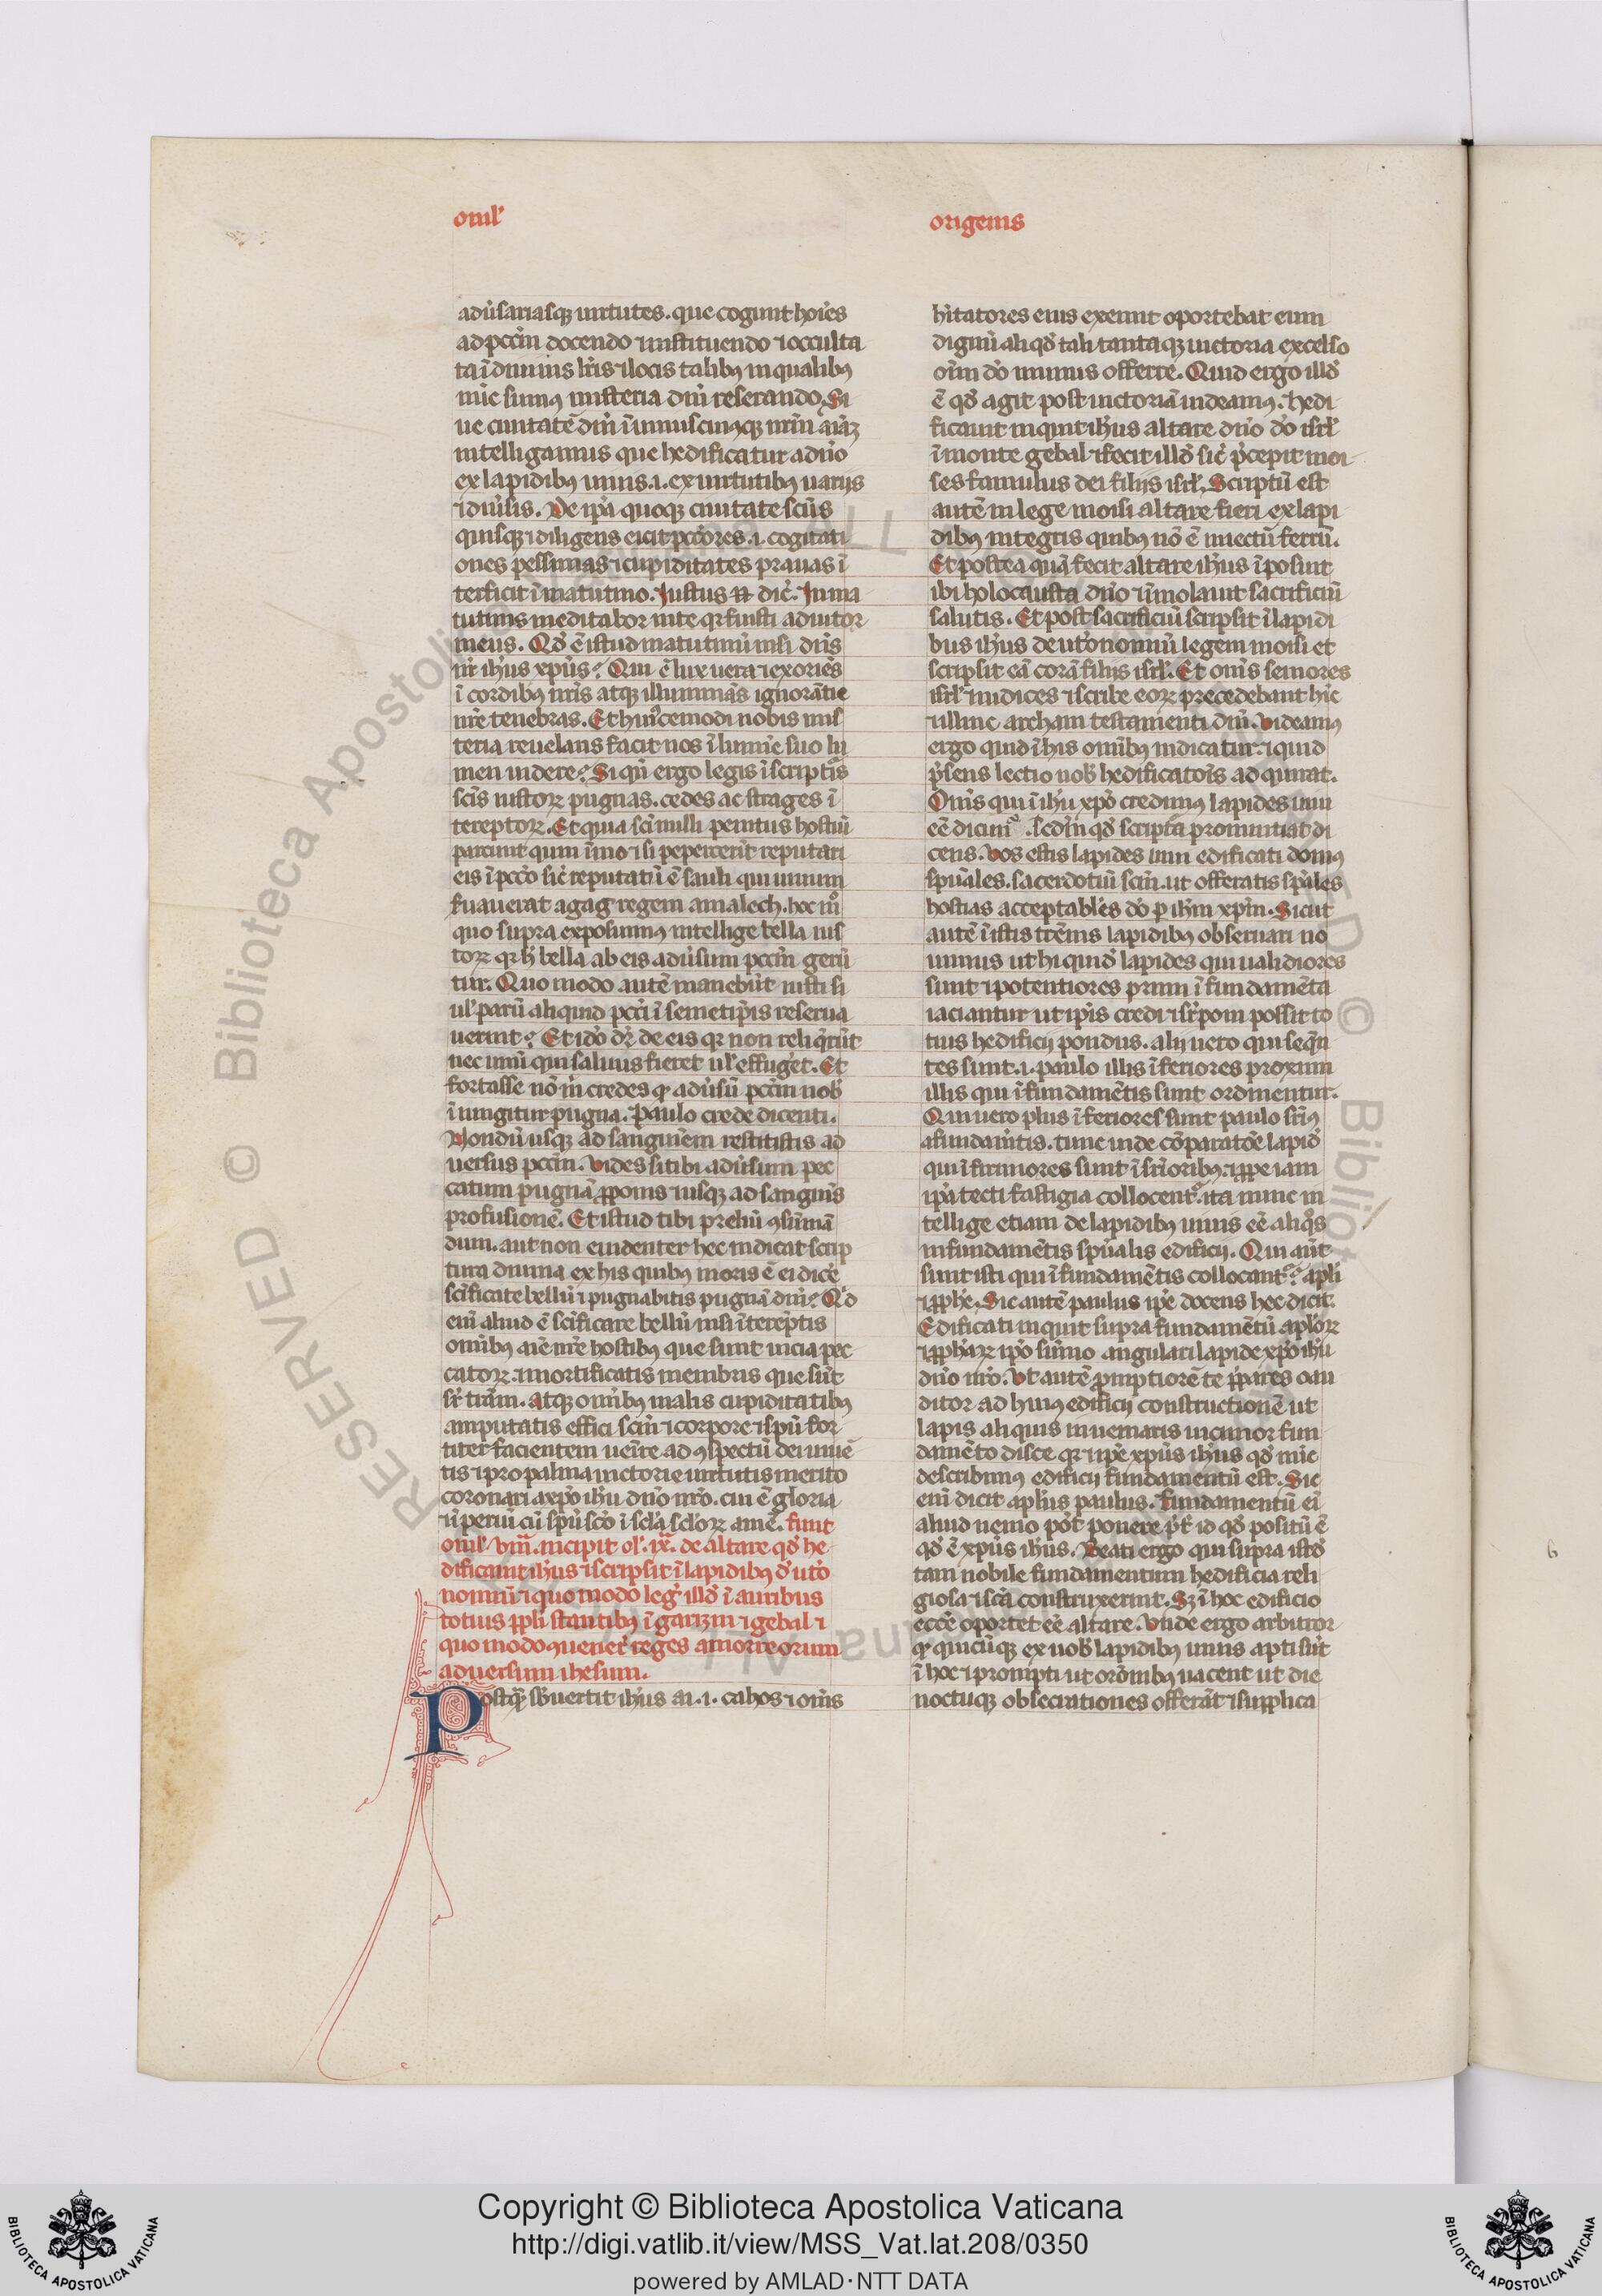 omil'
origenis
adu'sariasq; uirtutes. que cogunt hoies
ad pccm docendo ⁊ instituendo ⁊ occulta
ta ī diuinis lr̄is ⁊ locis talibꝰ in qualibꝰ
nūc sumꝰ misteria dn̄i reserando. Si
ue ciuitatē dn̄i
intelligamus que hedificatur a dn̄o
ex lapidibꝰ uiuis .i. ex uirtutibꝰ uariis
⁊ diu'sis. De ip̄a quoq; ciuitate scūs
quisq; ⁊ diligens eicit pccōres .i. cogitati
ones pessimas ⁊ cupiditates prauas ī
terficit ī matutino. Iustus
tutinis meditabor in te qꝛ fuisti adiutor
meus. Qd' ē istud matutinū nisi dn̄s
nr̄ ih'us xp̄us? Qui ē lux uera ⁊ exoriēs
ī cordibꝰ nr̄is atq; illuminās ignorātie
nr̄e tenebras. Et huꝰcemodi nobis mis
teria reuelans facit nos ī lumīe suo lu
men uidere? Si qn̄ ergo legis ī scriptis
scīs iustoꝝ pugnas. cedes ac strages ī
tereptoꝝ. Et quia sc̄i nulli penitus hostiū
parcunt quin īmo ⁊ si pepercerīt reputari
eis ī pccō sic' reputatū ē sauli qui uiuum
s'uauerat agag regem amalech. hoc mō
quo supra exposuimꝰ intellige bella ius
toꝝ qꝛ h' bella ab eis adu'sum pccm gerū
tur. Quo modo autē manebūt iusti si
ul' parū aliquid pcci ī semetip̄is reserua
uerint? Et idō dr̄ de eis qꝛ non reliq̄rūt
nec unū qui saluus fieret ul' effuget. Et
fortasse nō m̄ credes qꝛ adu'sū pccm nob'
ī iungitur pugna. Paulo crede dicenti.
Nondū usq; ad sanguinem restitistis ad
uersus pccm. Vides si tibi adu'sum pec
catum pugnā ꝓponis ⁊ usq; ad sanguinis
profusionē. Et istud tibi preliū ꝯsūmā
dum. aut non euidenter hec indicat scrip
tura diuina ex his quibꝰ moris ē ei dicē
sc̄ificate bellū ⁊ pugnabitis pugnā dn̄i? Qd'
eni aliud ē sc̄ificare bellū nisi īterēptis
omībꝰ aīe nr̄e hostibꝰ que sunt uicia pec
catoꝝ. ⁊ mortificatis membris que sūt
sr̄ trām. atq; omībꝰ malis cupiditatibꝰ
amputatis effici scm̄ ⁊ corpore ⁊ spū for
titer facientem uenire ad ꝯspectū dei
tis ⁊ pro palma uictorie uirtutis merito
coronari a xpō ih'u dn̄o nr̄o. cui ē gloria
⁊ īperiū cū spū scō ī scl̄a scl̄oꝝ amē. finit
omil' viiiᵃ. incipit ol' ixᵃ. de altare qd' he
dificauit ih'us ⁊ scripsit ī lapidibꝰ d'uto
nomiū ⁊ quomodo leg' illd' ī auribus
totius ppli stantibꝰ ī garizin ⁊ gebal ⁊
quo modo ꝯuener' reges amorreorum
aduersum ihesum.
Postq̄ sb'uertit ih'us ai .i. cahos ⁊ om̄s
hītatores eius exemit oportebat eum
dignū aliqd' tali tantaq; uictoria excelso
oīm dō munus offerre. Quid ergo illd'
ē qd' agit post uictoriā uideamꝰ. hedi
ficauit inquit ih'us altare dn̄o dō isrl'
ī monte gebal ⁊ fecit illd' sic' p̄cepit moi
ses famulus dei filiis isrl'. Scriptū est
autē in lege moisi altare fieri ex lapi
dibꝰ integris quibꝰ nō ē iniectū ferrū.
Et postea quā fecit altare ih'us īposuit
ibi holocausta dn̄o ⁊ īmolauit sacrificiū
salutis. Et post sacrificiū scripsit ī lapidi
bus ih'us deut'onomiū legem moisi et
scripsit eā corā filiis isrl'. Et om̄s seniores
isrl' ⁊ iudices ⁊ scribe eoꝝ precedebant hīc
⁊ illinc archam testamenti dn̄i. Videamꝰ
ergo quid ī his omībꝰ indicatur. ⁊ quid
p̄sens lectio nob' hedificatōīs adquirat.
Om̄s qui ī ih'u xpō credimꝰ lapides uiui
eē dicimꝰ. sed'm qd' scriptā pronuntiat di
cens. Vos estis lapides uiui edificati domꝰ
spūales. sacerdotiū scm̄. ut offeratis spālēs
hostias acceptabiles dō p ihm xpm. Sicut
autē ī istis trēnis lapidibꝰ obseruari no
uimus ut hi quid' lapides qui ualidiores
sunt ⁊ potentiores primi ī fundamēta
iaciantur ut ip̄is credi ⁊ sr̄poni possit to
tius hedificii pondus. alii uero qui seq̄n
tes sunt .i. paulo illis īferiores proximi
illis qui ī fundamētis sunt ordinentur.
Qui uero plus īferiores sunt paulo
a fundamtis. tunc inde cōparatōe lapid'
qui īfirmiores sunt ī
ip̄a tecti fastigia collocent'. ita nunc in
tellige etiam de lapidibꝰ uiuis eē aliq̄s
in fundamētis spūalis edificii. Qui aūt
sunt isti qui ī fundamētis collocant'? apl'i
⁊ ꝓph'e. Sic autē paulus ip̄e docens hec dicit.
Edificati inquit supra fundamētū apl'oꝝ
⁊ ꝓph'aꝝ ip̄o sūmo angulari lapide xpō ih'u
dn̄o nr̄o. Vt autē p̄mptiorē te p̄pares o au
ditor ad huiꝰ edificii constructionē ut
lapis aliquis inueniaris uicinior fun
damēto disce qꝛ ⁊ ip̄e xp̄us ih'us qd' nūc
describimꝰ edificii fundamentū est. Sic
eni dicit apl'us paulus. Fundamentū ei
aliud nemo pōt ponere p̄t' id qd' positū ē
qd' ē xp̄us ih'us. Beati ergo qui supra istd'
tam nobile fundamentum hedificia reli
giosa ⁊ scā construxerint. Sꝫ ī hoc edificio
eccē oportet eē altare. Vnde ergo arbitror
qꝛ quicūq; ex uob' lapidibꝰ uiuis apti sūt
ī hoc ⁊ prompti ut orōnibꝰ uacent ut die
noctuq; obsecrationes offerāt ⁊ supplica
Copyright © Biblioteca Apostolica Vaticana
http://digi.vatlib.it/view/MSS_Vat.lat.208/0350
powered by AMLAD·NTT DATA
BIBLIOTECA APOSTOLICA VATICANA
BIBLIOTECA APOSTOLICA VATICANA